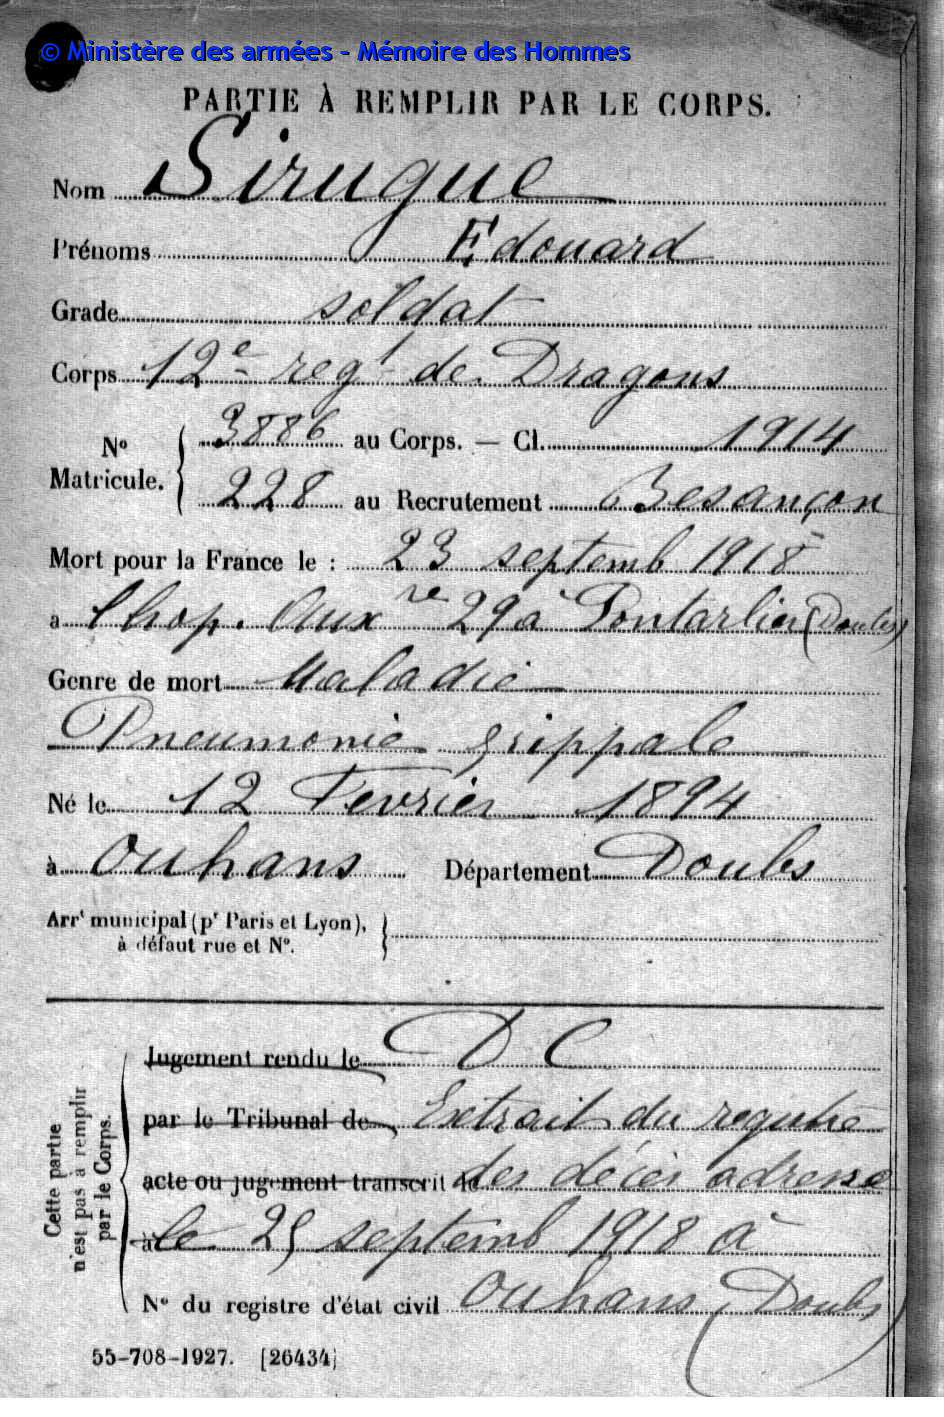 © Ministère des armées - Mémoire des Hommes
PARTIE À REMPLIR PAR LE CORPS.
Nom Sirugue
Prénoms Edouard
Grade soldat
Corps 12e regt de Dragons
No Matricule. 3886 au Corps. — Cl. 1914
228 au Recrutement Besançon
Mort pour la France le : 23 septemb 1918
a l'hop. Auxre 29 à Pontarlier (Doubs)
Genre de mort Maladie
Pneumonie grippale
Né le 12 Fevrier 1894
à Ouhans Département Doubs
Arrt municipal (pr Paris et Lyon),
à défaut rue et No.
Cette partie n'est pas à remplir par le Corps.
Jugement rendu le D C
par le Tribunal de Extrait du registre
acte ou jugement transcrit le des décès adressé
à le 25 septemb 1918 à
No du registre d'état civil Ouhans (Doubs)
55-708-1927. [26434]